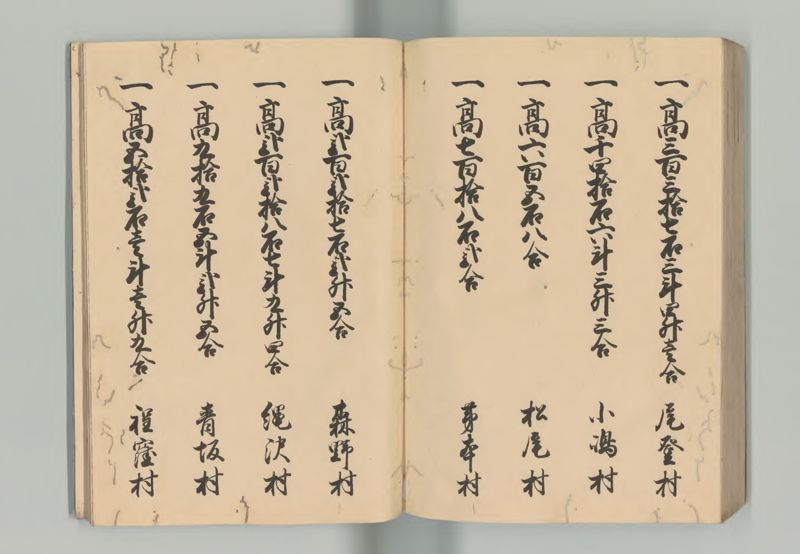 一高三百三拾七石三斗四升壱合 尾登村
一高千四拾石六斗三升三合 小嶋村
一高六百五石八合 松尾村
一高七百拾八石弐合 芽本村
一高弐百弐拾七石弐升五合 森野村
一高弐百弐拾八石七斗九升四合 縄沢村
一高九拾九石五斗弐升五合 青坂村
一高五拾弐石壱斗壱升九合 程窪村